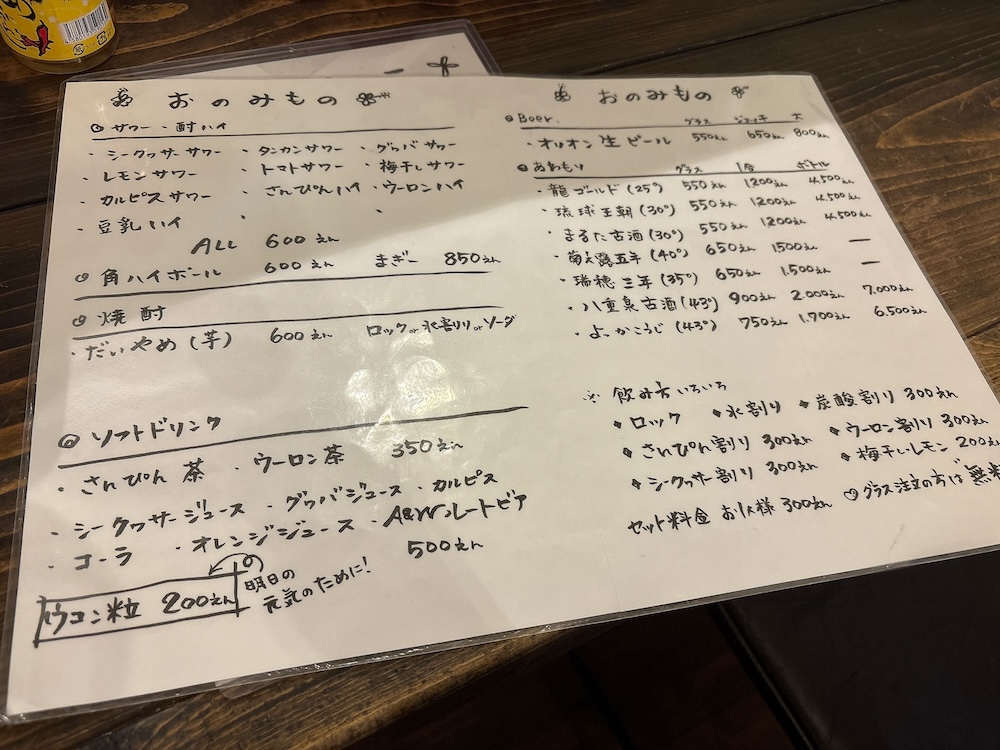 おのみもの
◎ サワー・酎ハイ
・シークヮサーサワー ・タンカンサワー ・グァバサワー
・レモンサワー ・トマトサワー ・梅干しサワー
・カルピスサワー ・さんぴんハイ ・ウーロンハイ
・豆乳ハイ ・ ・
ALL 600えん
◎ 角ハイボール 600えん まぎー 850えん
◎ 焼酎
・だいやめ(芋) 600えん ロック or 水割り or ソーダ
◎ ソフトドリンク
・さんぴん茶 ・ウーロン茶 350えん
・シークヮサージュース ・グァバジュース ・カルピス
・コーラ ・オレンジジュース ・A&Wルートビア
500えん
ウコン粒 200えん
明日の
元気のために!
おのみもの
◎ Beer. グラス ジョッキ 大
・オリオン生ビール 550えん 650えん 800えん
◎ あわもり グラス 1合 ボトル
・龍ゴールド(25°) 550えん 1200えん 4,500えん
・琉球王朝(30°) 550えん 1200えん 4,500えん
・まるた古酒(30°) 550えん 1200えん 4,500えん
・菊之露五年(40°) 650えん 1500えん ー
・瑞穂三年(35°) 650えん 1,500えん ー
・八重泉古酒(43°) 900えん 2,000えん 7,000えん
・よっかこうじ(43°) 750えん 1,700えん 6,500えん
※ 飲み方いろいろ
◆ ロック ◆ 水割り ◆ 炭酸割り 300えん
◆ さんぴん割り 300えん ◆ ウーロン割り 300えん
◆ シークヮサー割り 300えん ◆ 梅干し・レモン 200えん
セット料金 お1人様 300えん ◎ グラス注文の方は無料